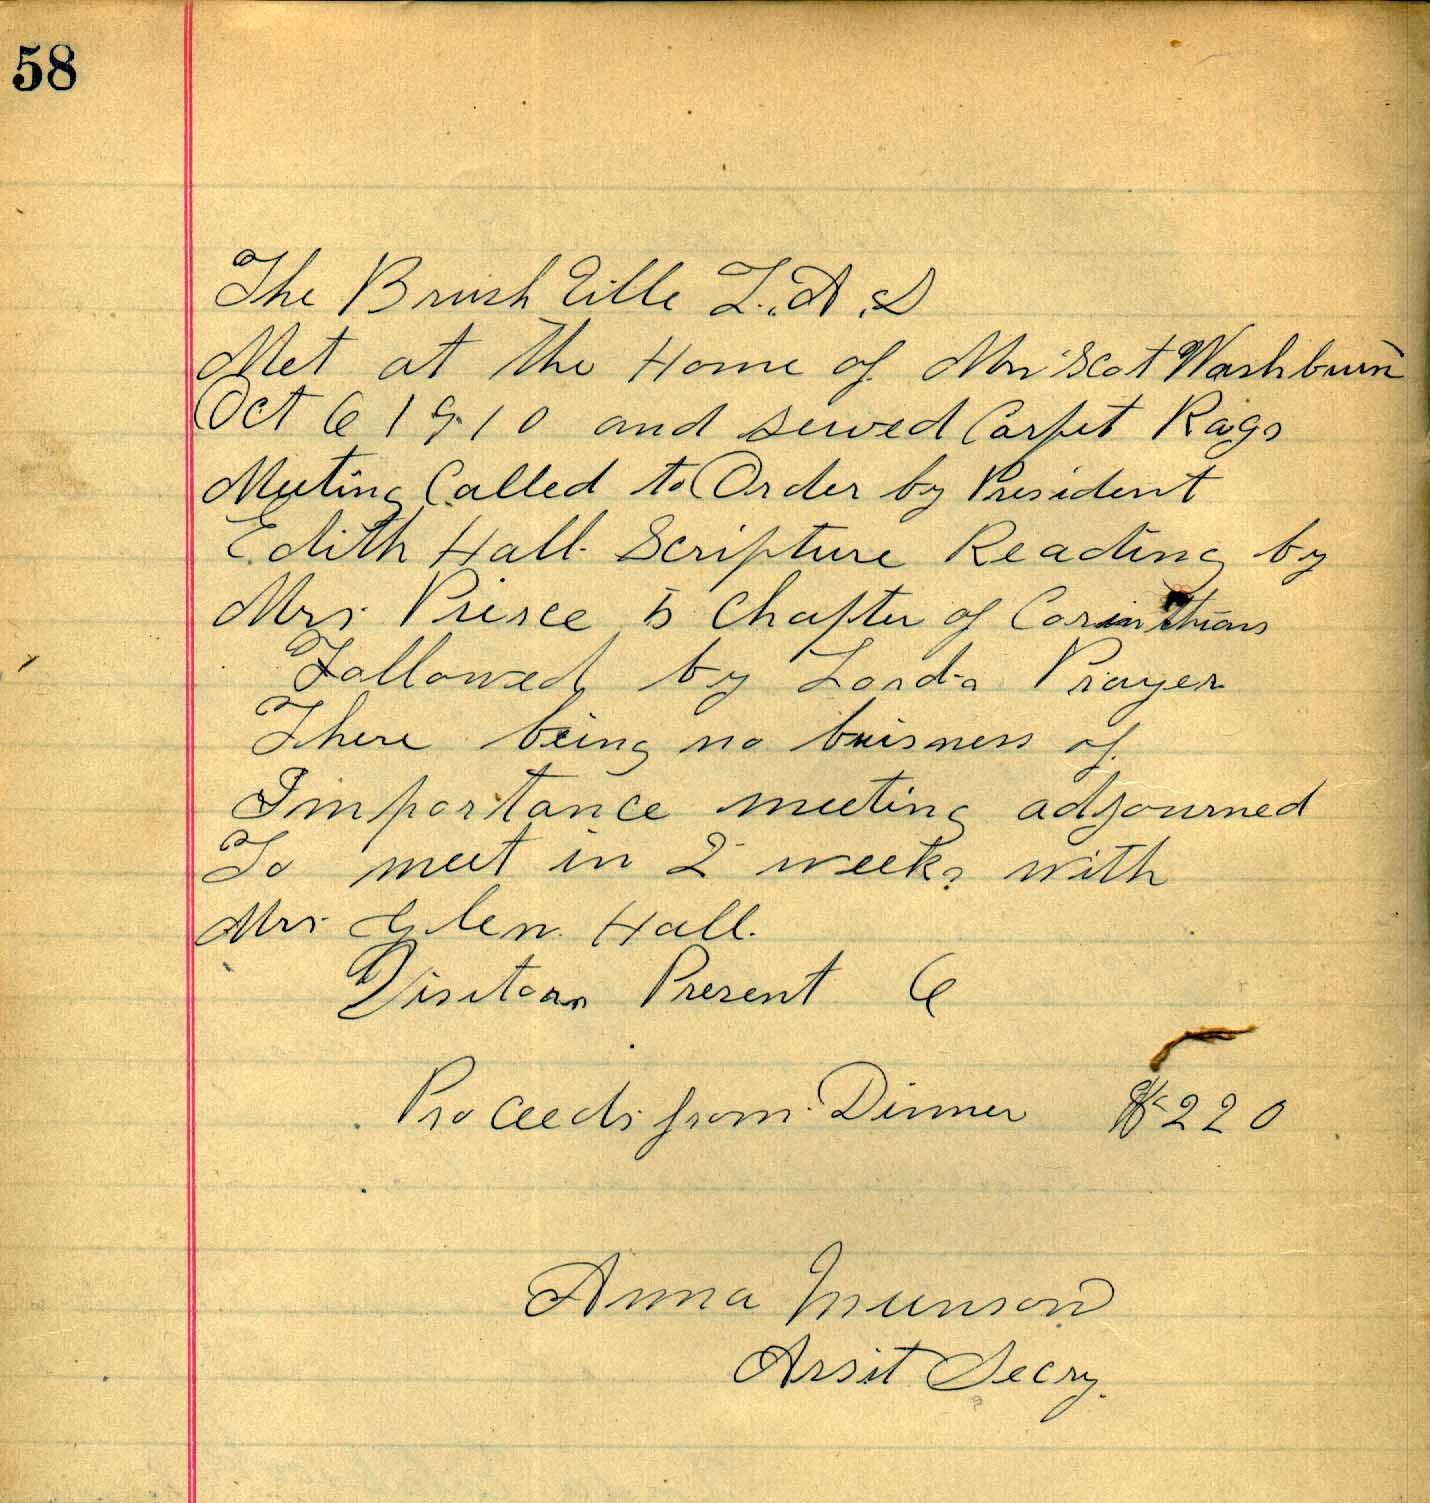 58
The Brush Ville L.A.S
Met at the Home of Mrs Scot Washburn
Oct 6 1910 and sewed Carpet Rags
Meeting Called to Order by President
Edith Hall. Scripture Reading by
Mrs. Pierce 5 Chapter of Corinthians
Followed by Lords Prayer
There being no buisness of
Importance meeting adjourned
To meet in 2 weeks with
Mrs Glen Hall.
Visitors Present 6
Proceeds from Dinner $220
Anna Munson
Assit Secry.